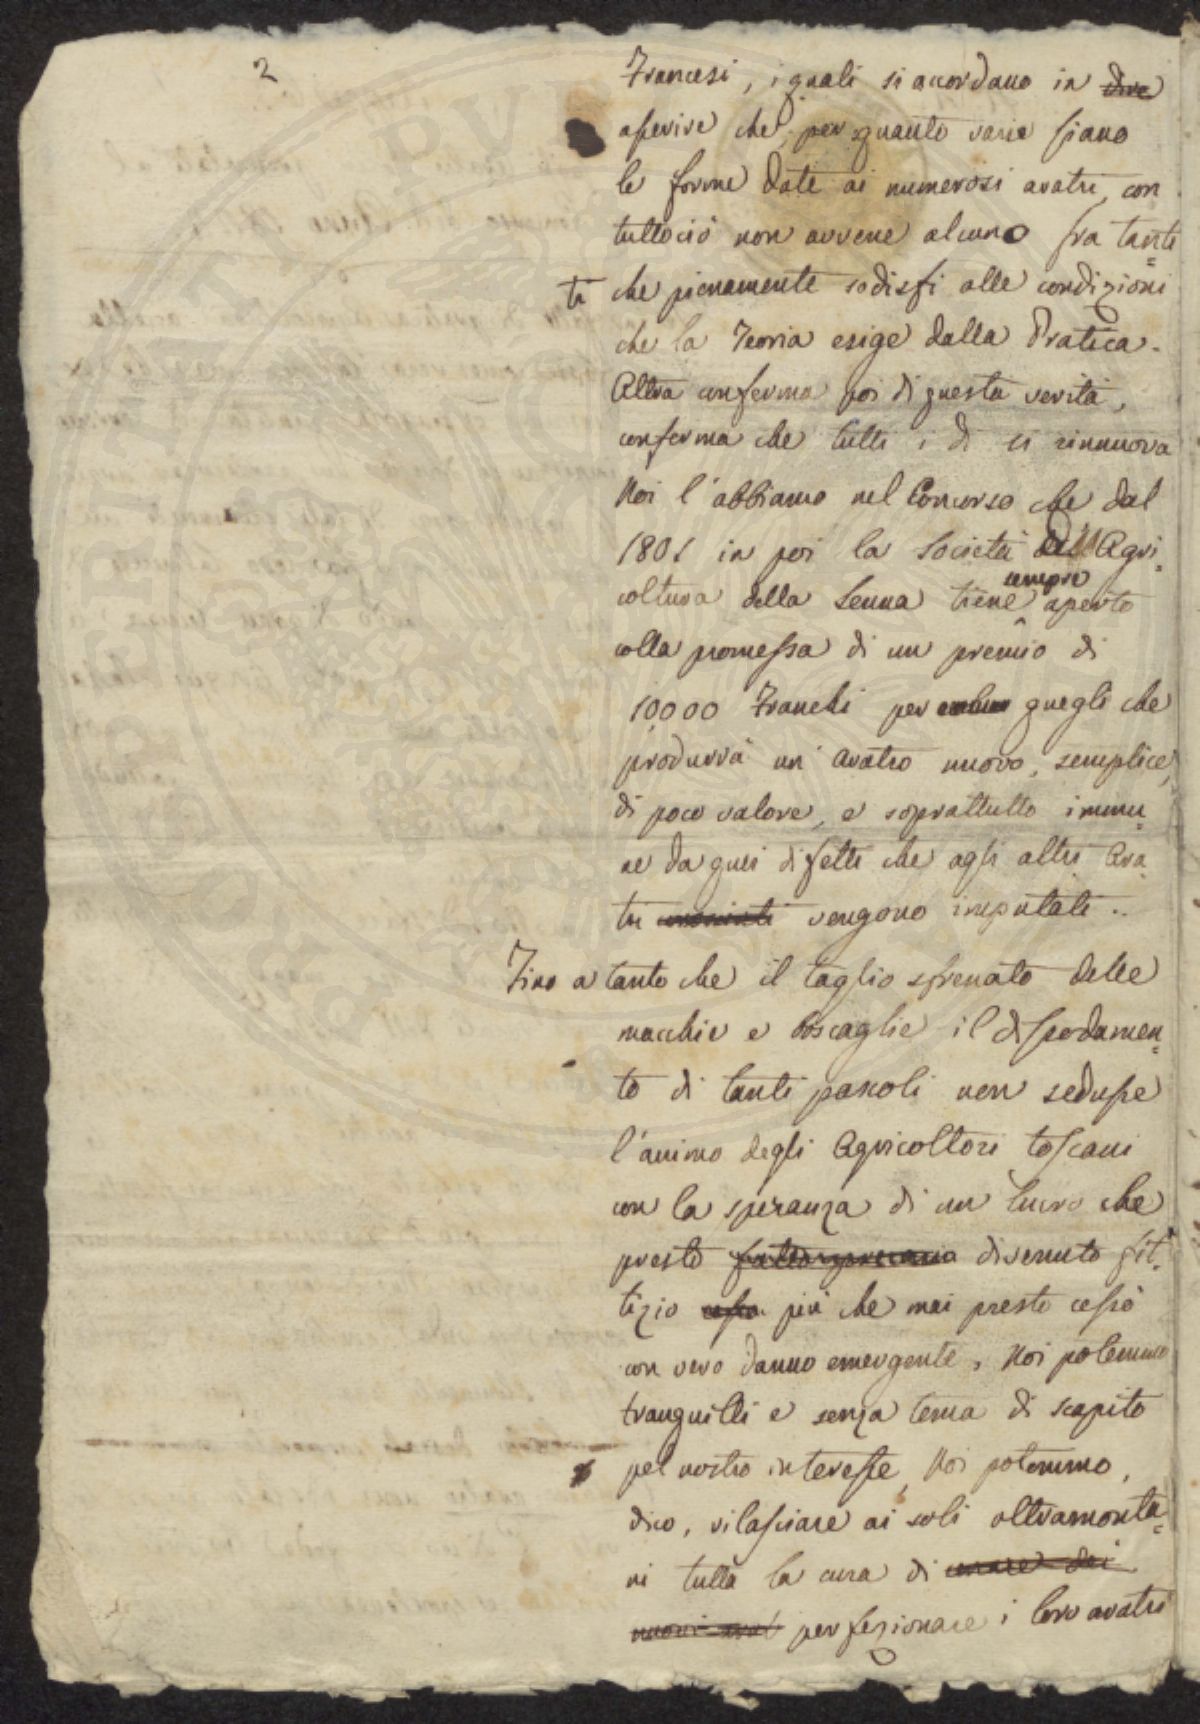 2
Francesi, i quali si accordano in dire
asserire che, per quanto varie siano
le forme date ai numerosi aratri, con
tuttociò non avvene alcuno fra tanti
ta che pienamente sodisfi alle condizioni
che la Teoria esige dalla Pratica.
Altra conferma poi di questa verità,
conferma che tutti i dì si rinnuova
Noi l'abbiamo nel Concorso che dal
1801 in poi la Società di Agri-
coltura della Senna tiene sempre aperto
colla promessa di un premio di
10000 Franchi per quegli che
produrrà un aratro nuovo, semplice,
di poco valore, e soprattutto immu-
ne da quei difetti che agli altri Ara
tri conosciuti vengono imputati.
Fino a tanto che il taglio sfrenato delle
macchie e boscaglie il dissodamen-
to di tanti pascoli non sedusse
l'animo degli Agricoltori toscani
con la speranza di un lucro che
presto fattosi precario divenuto fit-
tizio più che mai presto cessò
con vero danno emergente, Noi potemmo
tranquilli e senza tema di scapito
pel nostro interesse, Noi potemmo,
dico, rilasciare ai soli oltramonta-
ni tutta la cura di creare dei
nuovi arat perfezionare i loro aratri